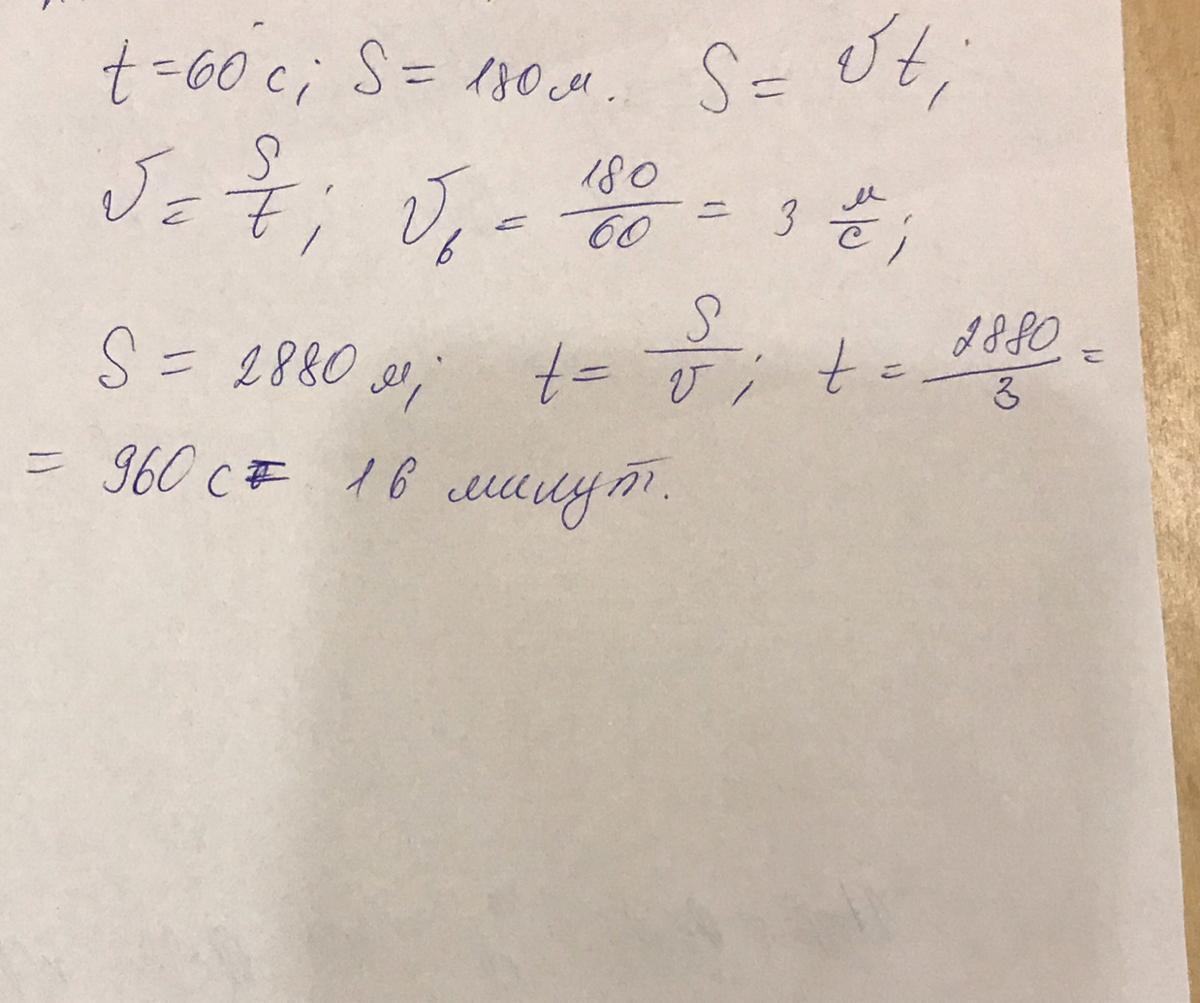 t = 60 с; S = 180 м. S = Vt;
V = S/t; Vв = 180/60 = 3 м/с;
S = 2880 м; t = S/V; t = 2880/3 =
= 960 с = 16 минут.